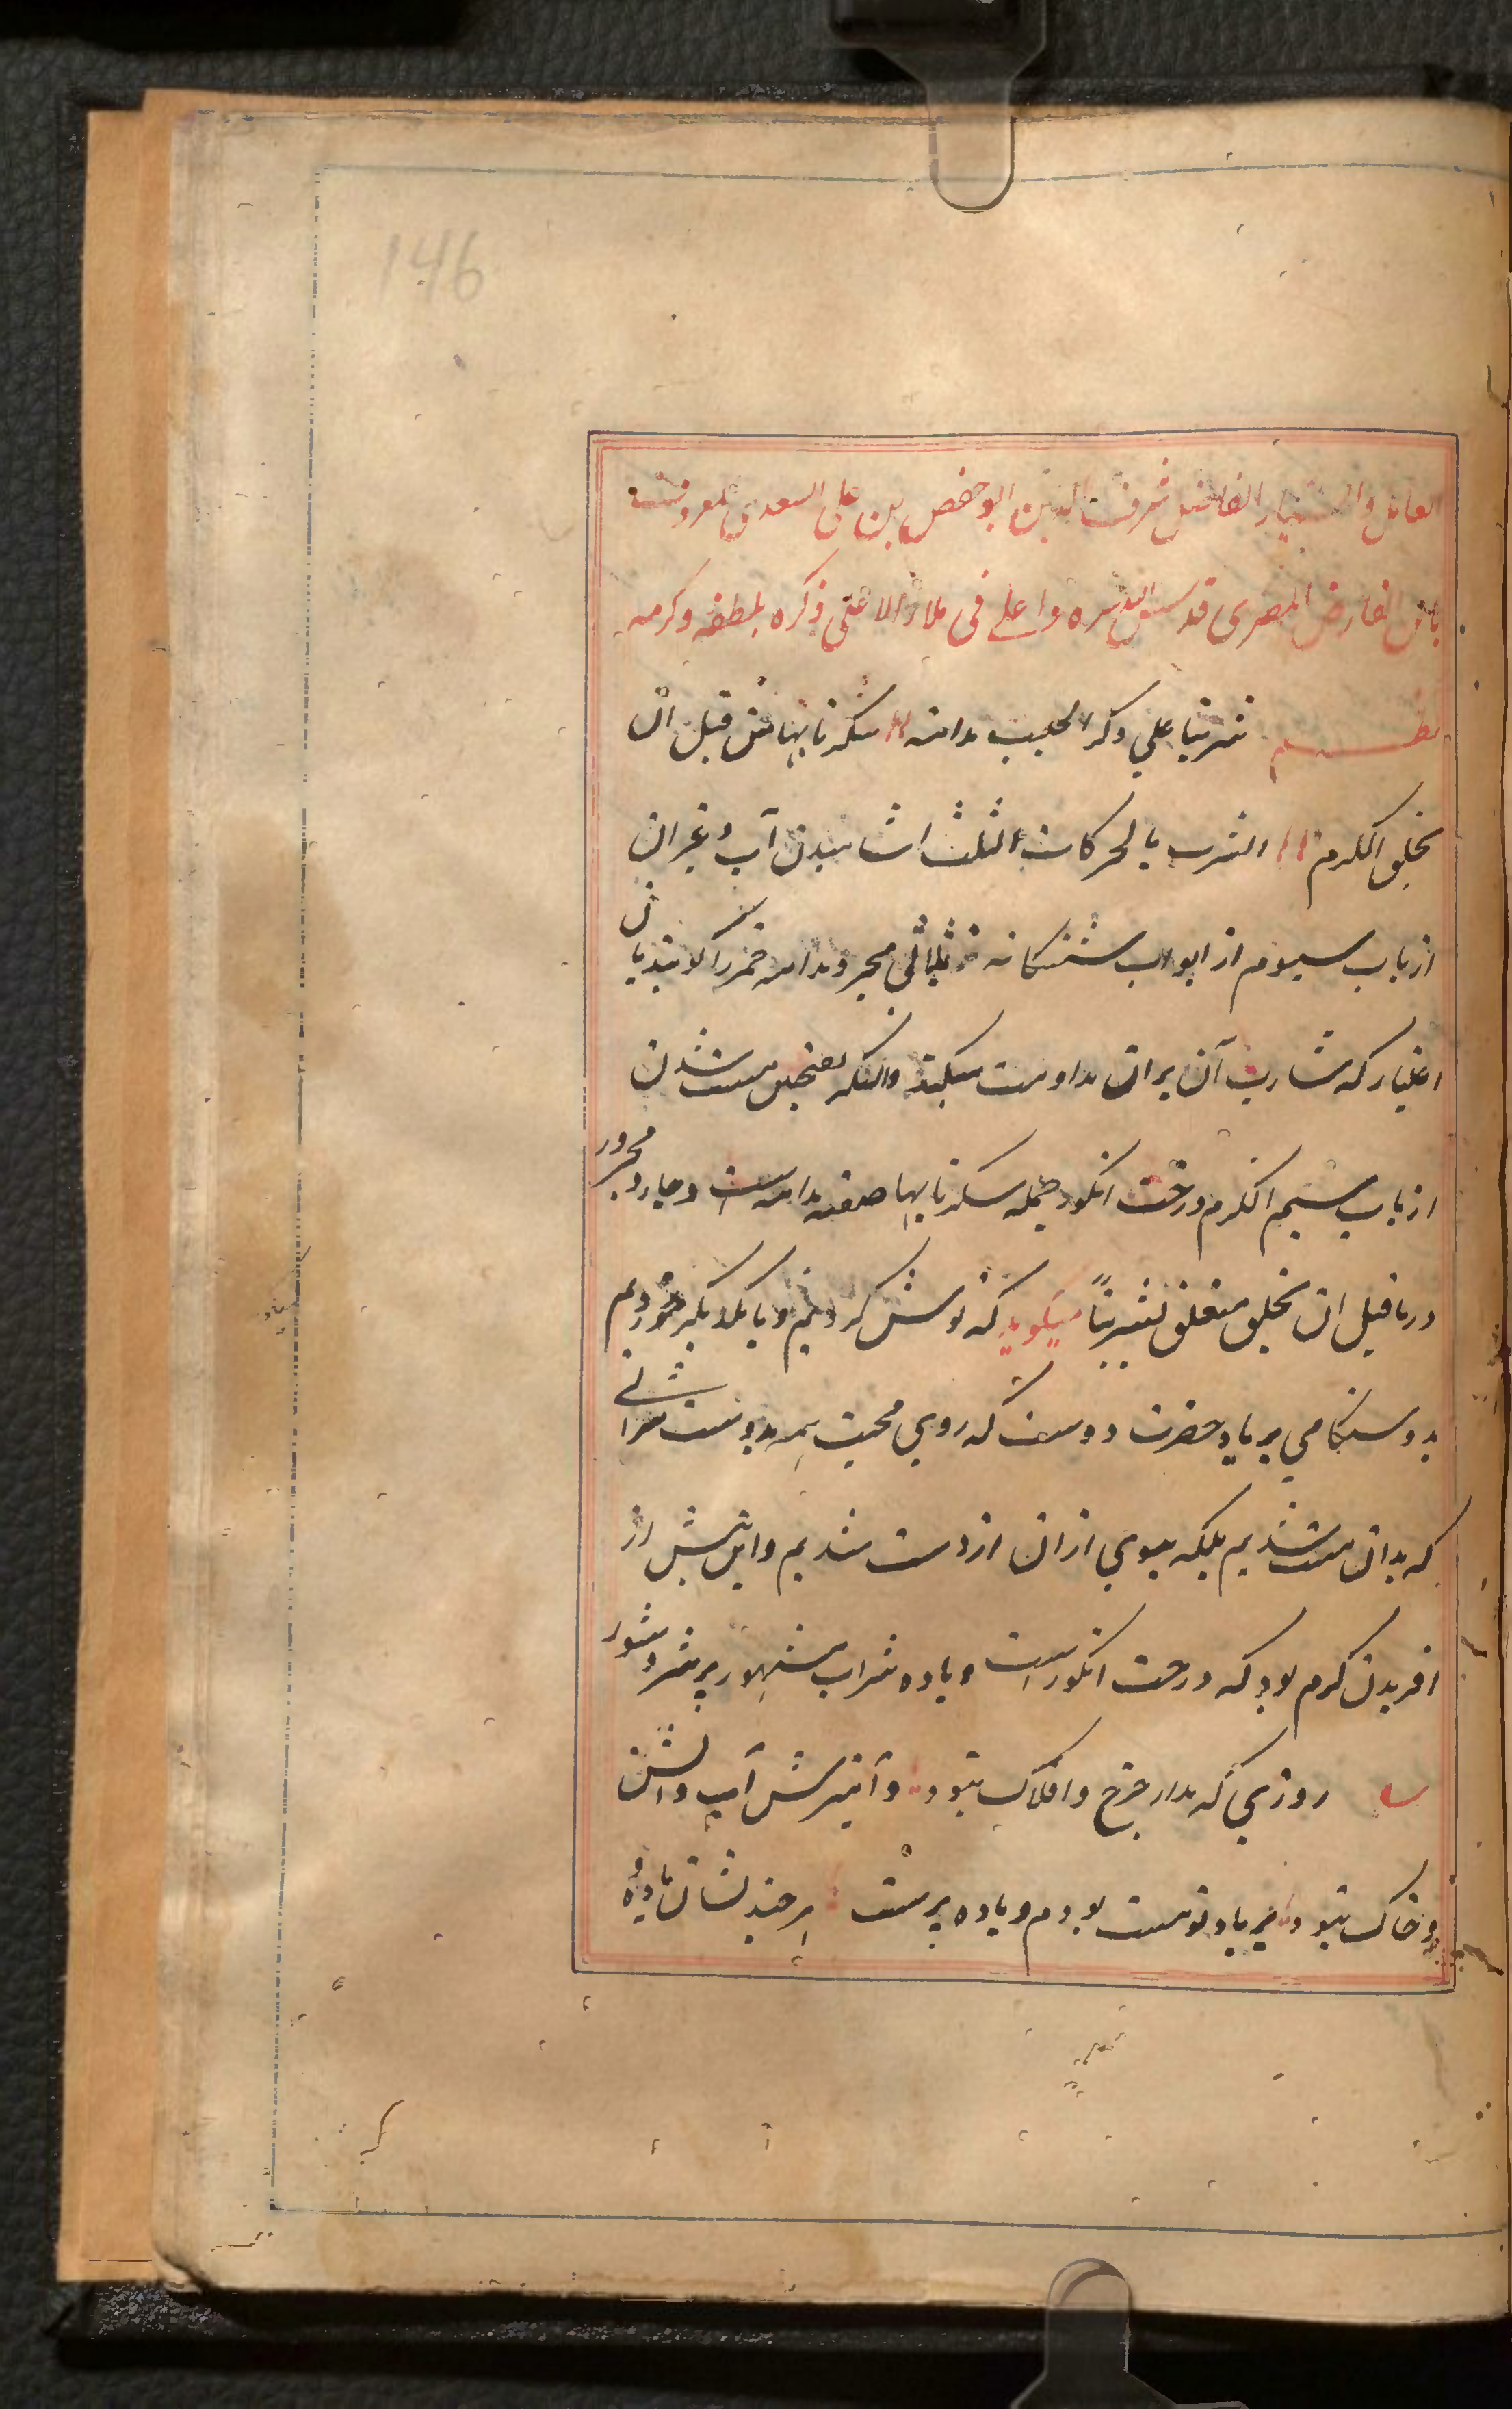 146
العامل و الفاضل شرف الدین ابو حفص بن علی السعدی المعروف
بابن الفارض المصری قدس الله سره واعلی فی ملاء الاعلی ذکره بلطفه وکرمه
نظم شربنا علی ذکر الحبیب مدامة سکرنا بها من قبل ان
یخلق الکرم الشرب بالحرکات الثلث اشامیدن آب و غیر ان
از باب سیوم از ابواب ششکانه ثلاثی مجرد و مدامه خمر را کویند بان
اعتبار که شارب آن بران مداومت میکند والسکر بفتحین مست شدن
از باب سیم الکرم درخت انکور جمله سکرنا بها صفت مدامه است و جار و مجرور
در من قبل ان یخلق متعلق بشربنا میکوید که نوش کردیم و با یکدیکر خوردیم
بدوستکامی بر یاد حضرت دوست که روی محبت همه بدوست شرابی
که بدان مست شدیم بلکه ببوی از ان از دست شدیم و این پیش از
افریدن کرم بود که درخت انکور است و ماده شراب مشهور پر شر و شور
روزی که مدار چرخ و افلاک نبود و آمیزش آب و آتش
و خاک نبود بر یاد تو مست بودم و باده پرست هر چند نشان باده و